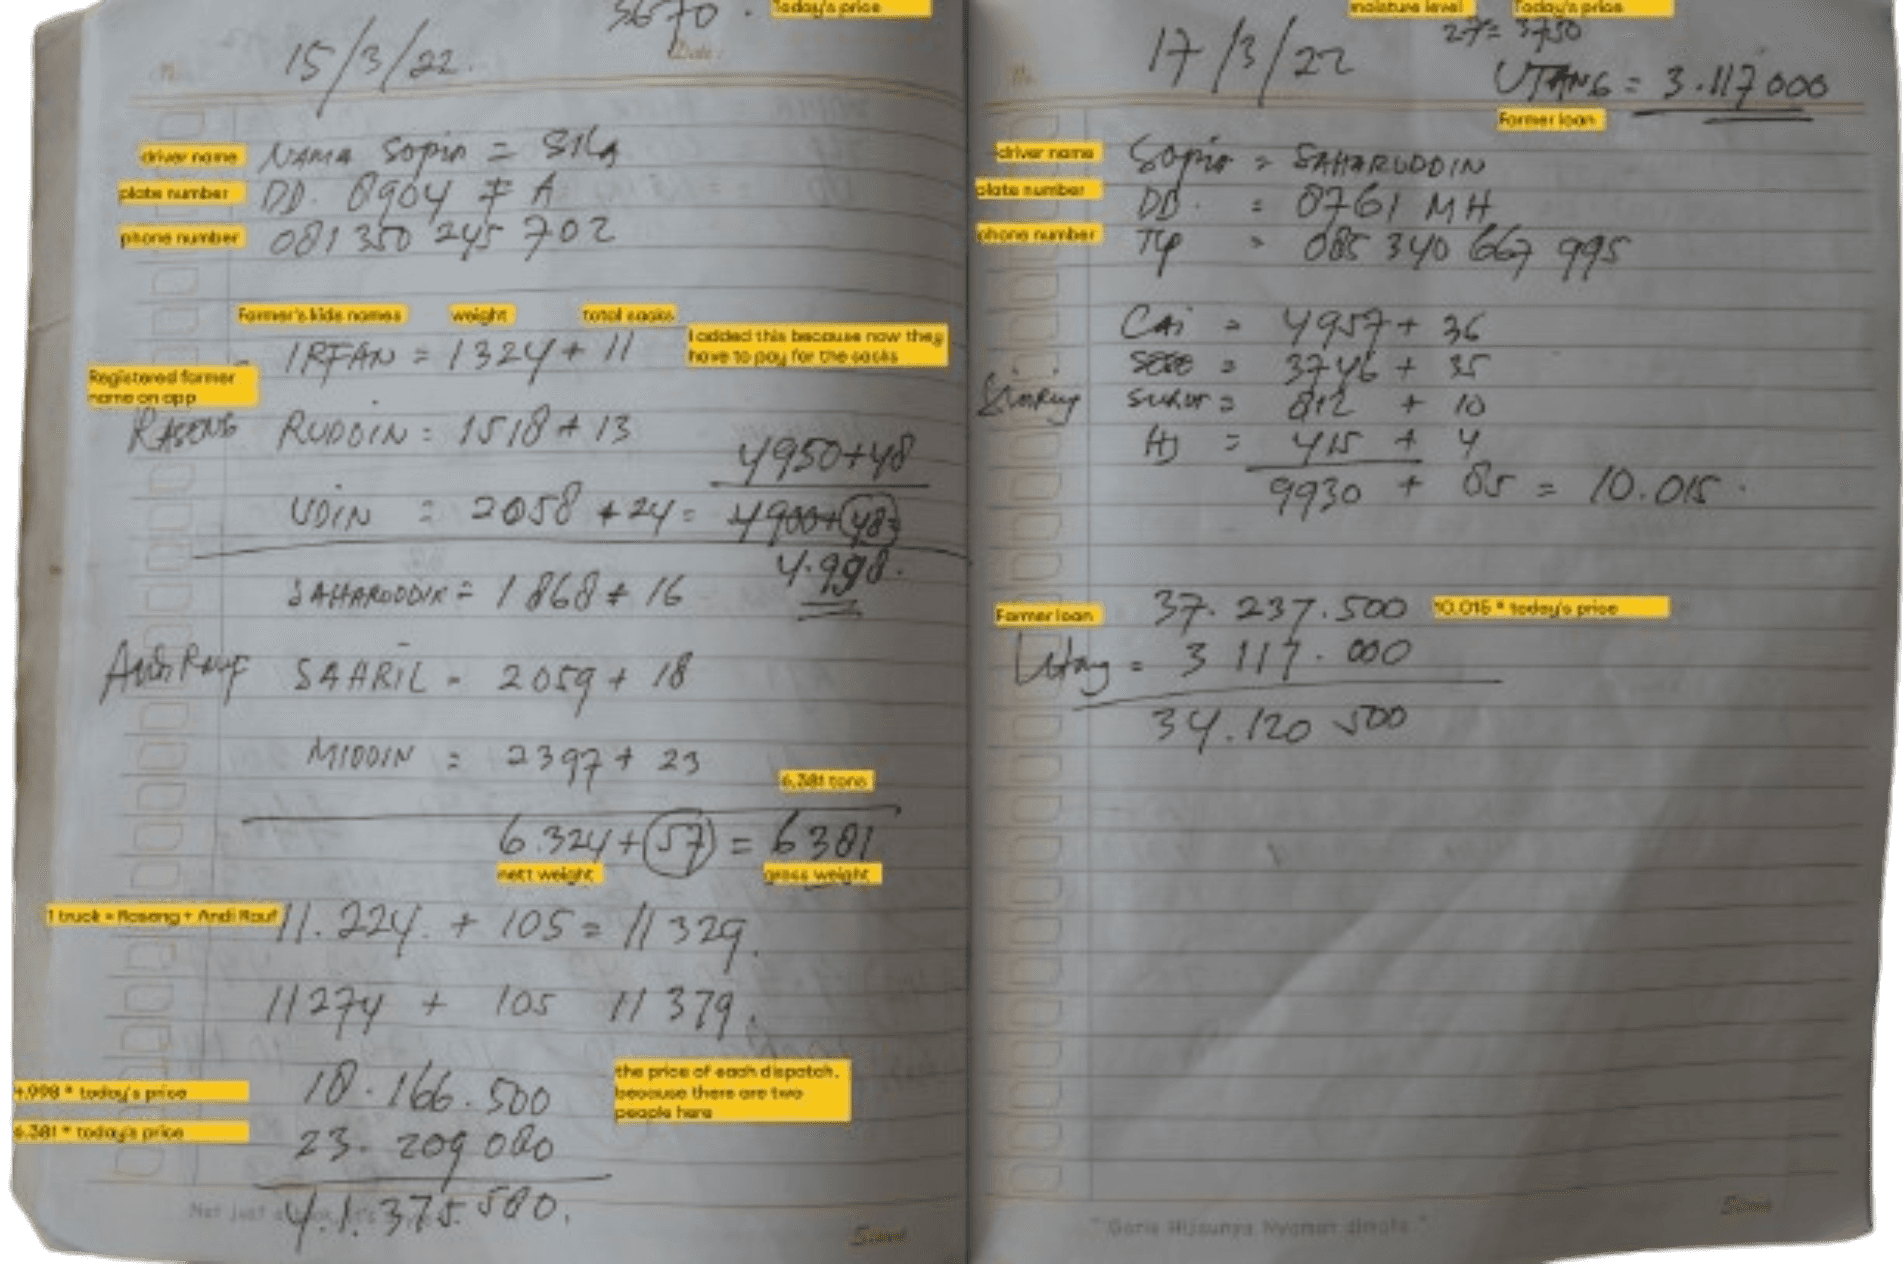 3670. Today's price
15/3/22.
driver name NAMA Sopir = SILA
plate number DD. 8904 FA
phone number 081 350 245 702
Farmer's kids names weight total sacks
IRFAN = 1324 + 11
I added this because now they
have to pay for the sacks
Registered farmer
name on app
RASENG RUDDIN = 1518 + 13
4950+48
UDIN = 2058 + 24 = 4900+48=
4.998.
SAHARUDDIN = 1868 + 16
Andi Rauf SAHRIL = 2059 + 18
MIDDIN = 2397 + 23
6.381 tons
6.324 + 57 = 6381
nett weight gross weight
1 truck = Raseng + Andi Rauf 11.224. + 105 = 11329.
11274 + 105 11379.
4.998 * today's price 18.166.500
the price of each dispatch.
because there are two
people here
6.381 * today's price 23. 209 000
41.375.500.
Sinar
moisture level Today's price
17/3/22 27= 3730
UTANG = 3.117 000
Farmer loan
driver name Sopir = SAHARUDDIN
plate number DD. = 8761 MH
phone number Tlp = 085 340 667 995
CAi = 4957 + 36
= 3746 + 35
= 812 + 10
Hj = 415 + 4
9930 + 85 = 10.015.
37. 237.500 10.015 * today's price
Farmer loan
Utang = 3 117. 000
34.120 500
"Garis Hijaunya Nyaman dimata"
Sinar